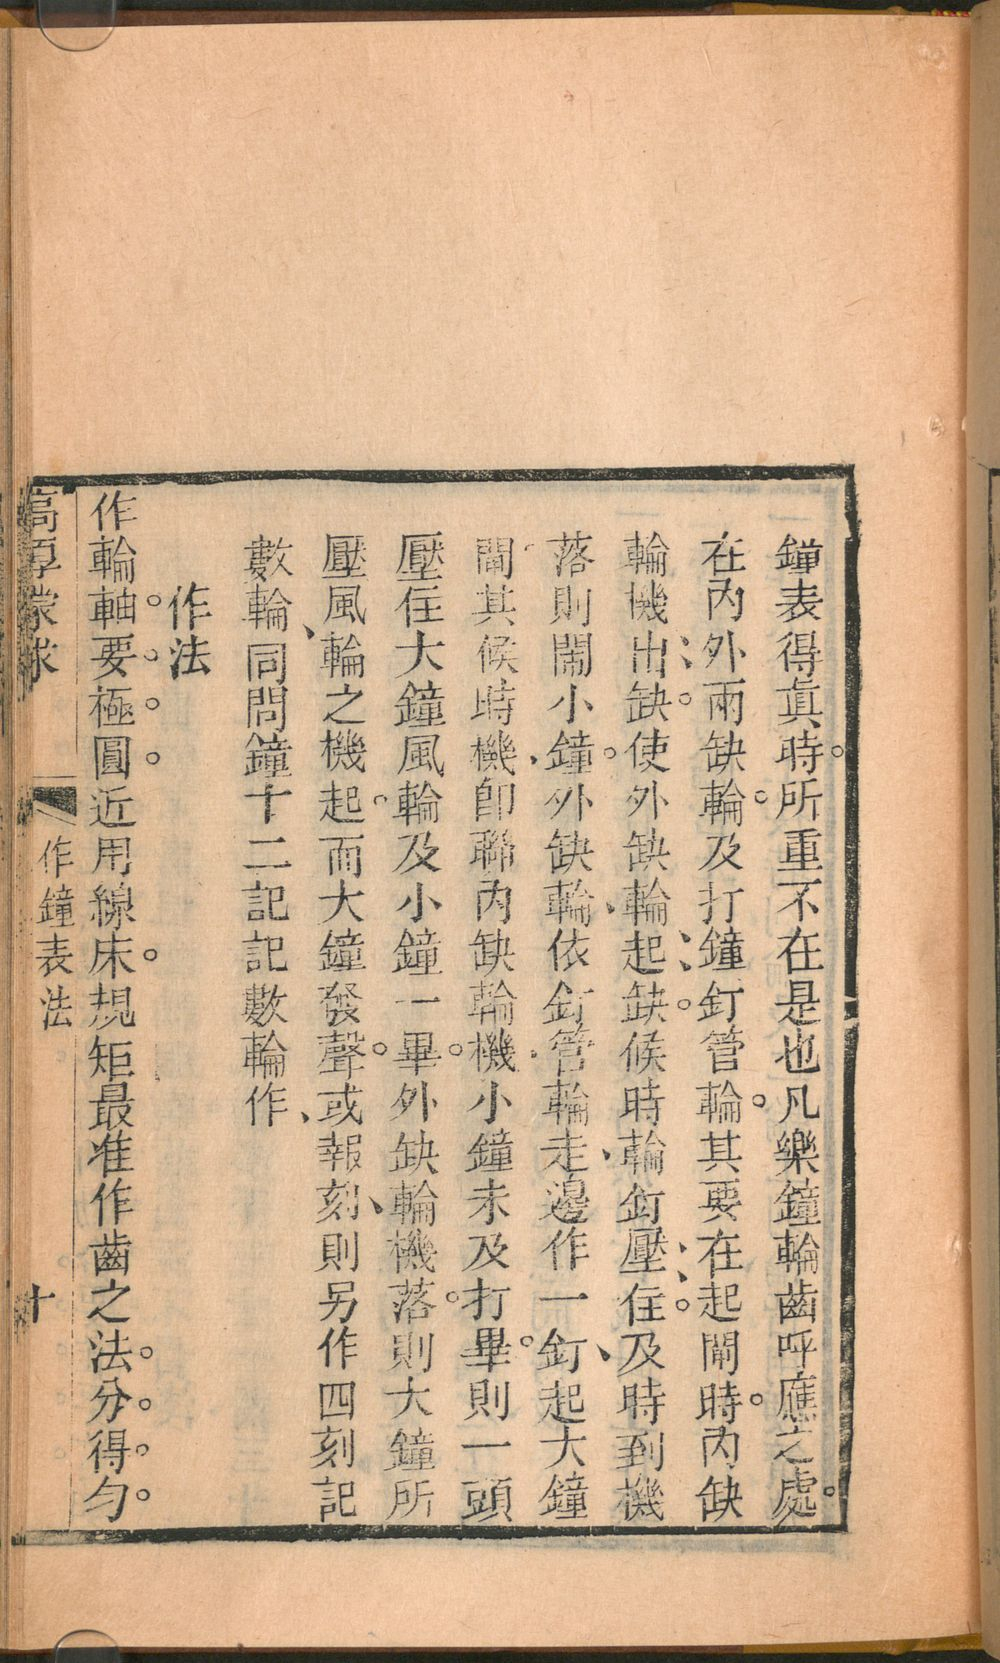 鐘表得眞時。所重不在是也凡樂鐘輪齒呼應之處。
在內外兩缺輪。及打鐘釘管輪。其要在起鬧時。內缺
輪機出、缺。使外缺輪起、缺。候時輪釘壓、住。及時到機
落則鬧小鐘。外缺輪、依釘管輪走、邊作一釘、起大鐘
鬧其候時機、卽聯內缺輪機、小鐘未及打畢。則一頭
壓住大鐘風輪及小鐘一畢。外缺輪機落。則大鐘所
壓風輪之機起。而大鐘發聲。或報刻、則另作四刻記
數輪、同問鐘十二記記數輪作、
作法
作輪軸。要。極。圓。近用線床。規矩最准作齒之法。分。得。勻。
高厚蒙求
作鐘表法
十